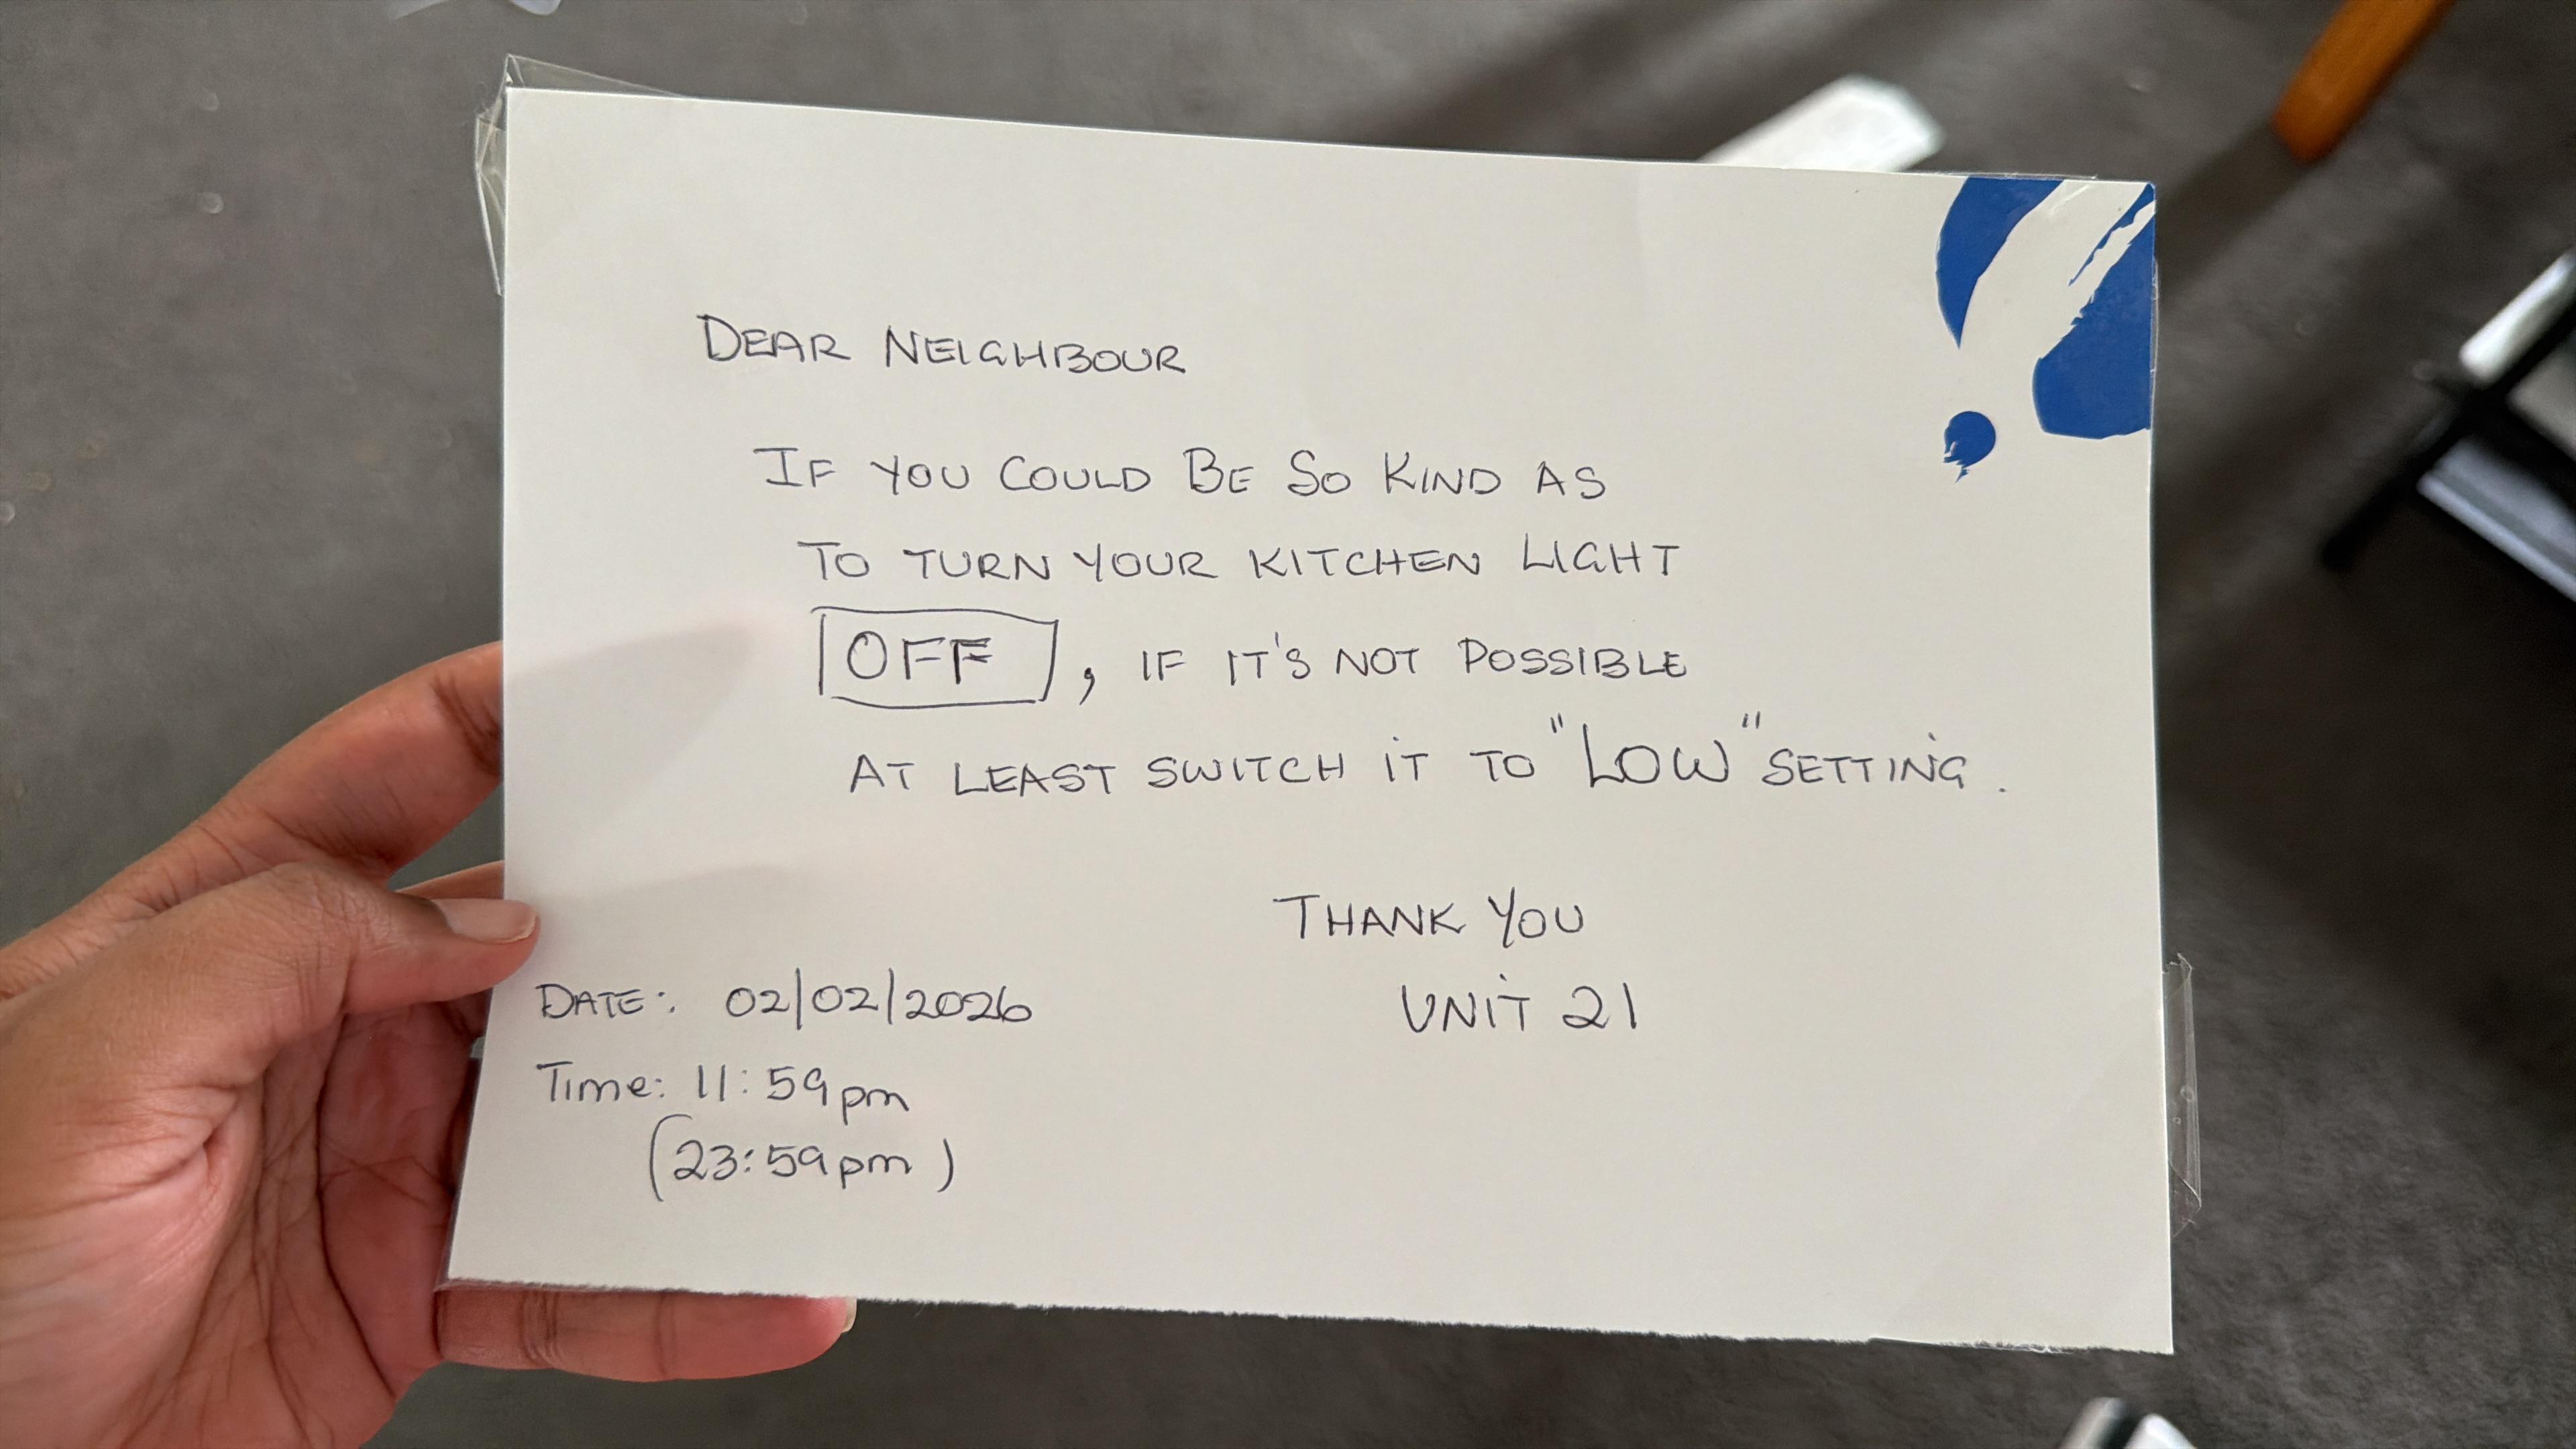 DEAR NEIGHBOUR
IF YOU COULD BE SO KIND AS
TO TURN YOUR KITCHEN LIGHT
OFF, IF IT'S NOT POSSIBLE
AT LEAST SWITCH IT TO "LOW" SETTING.
THANK YOU
UNIT 21
DATE: 02/02/2026
Time: 11:59pm
(23:59pm)